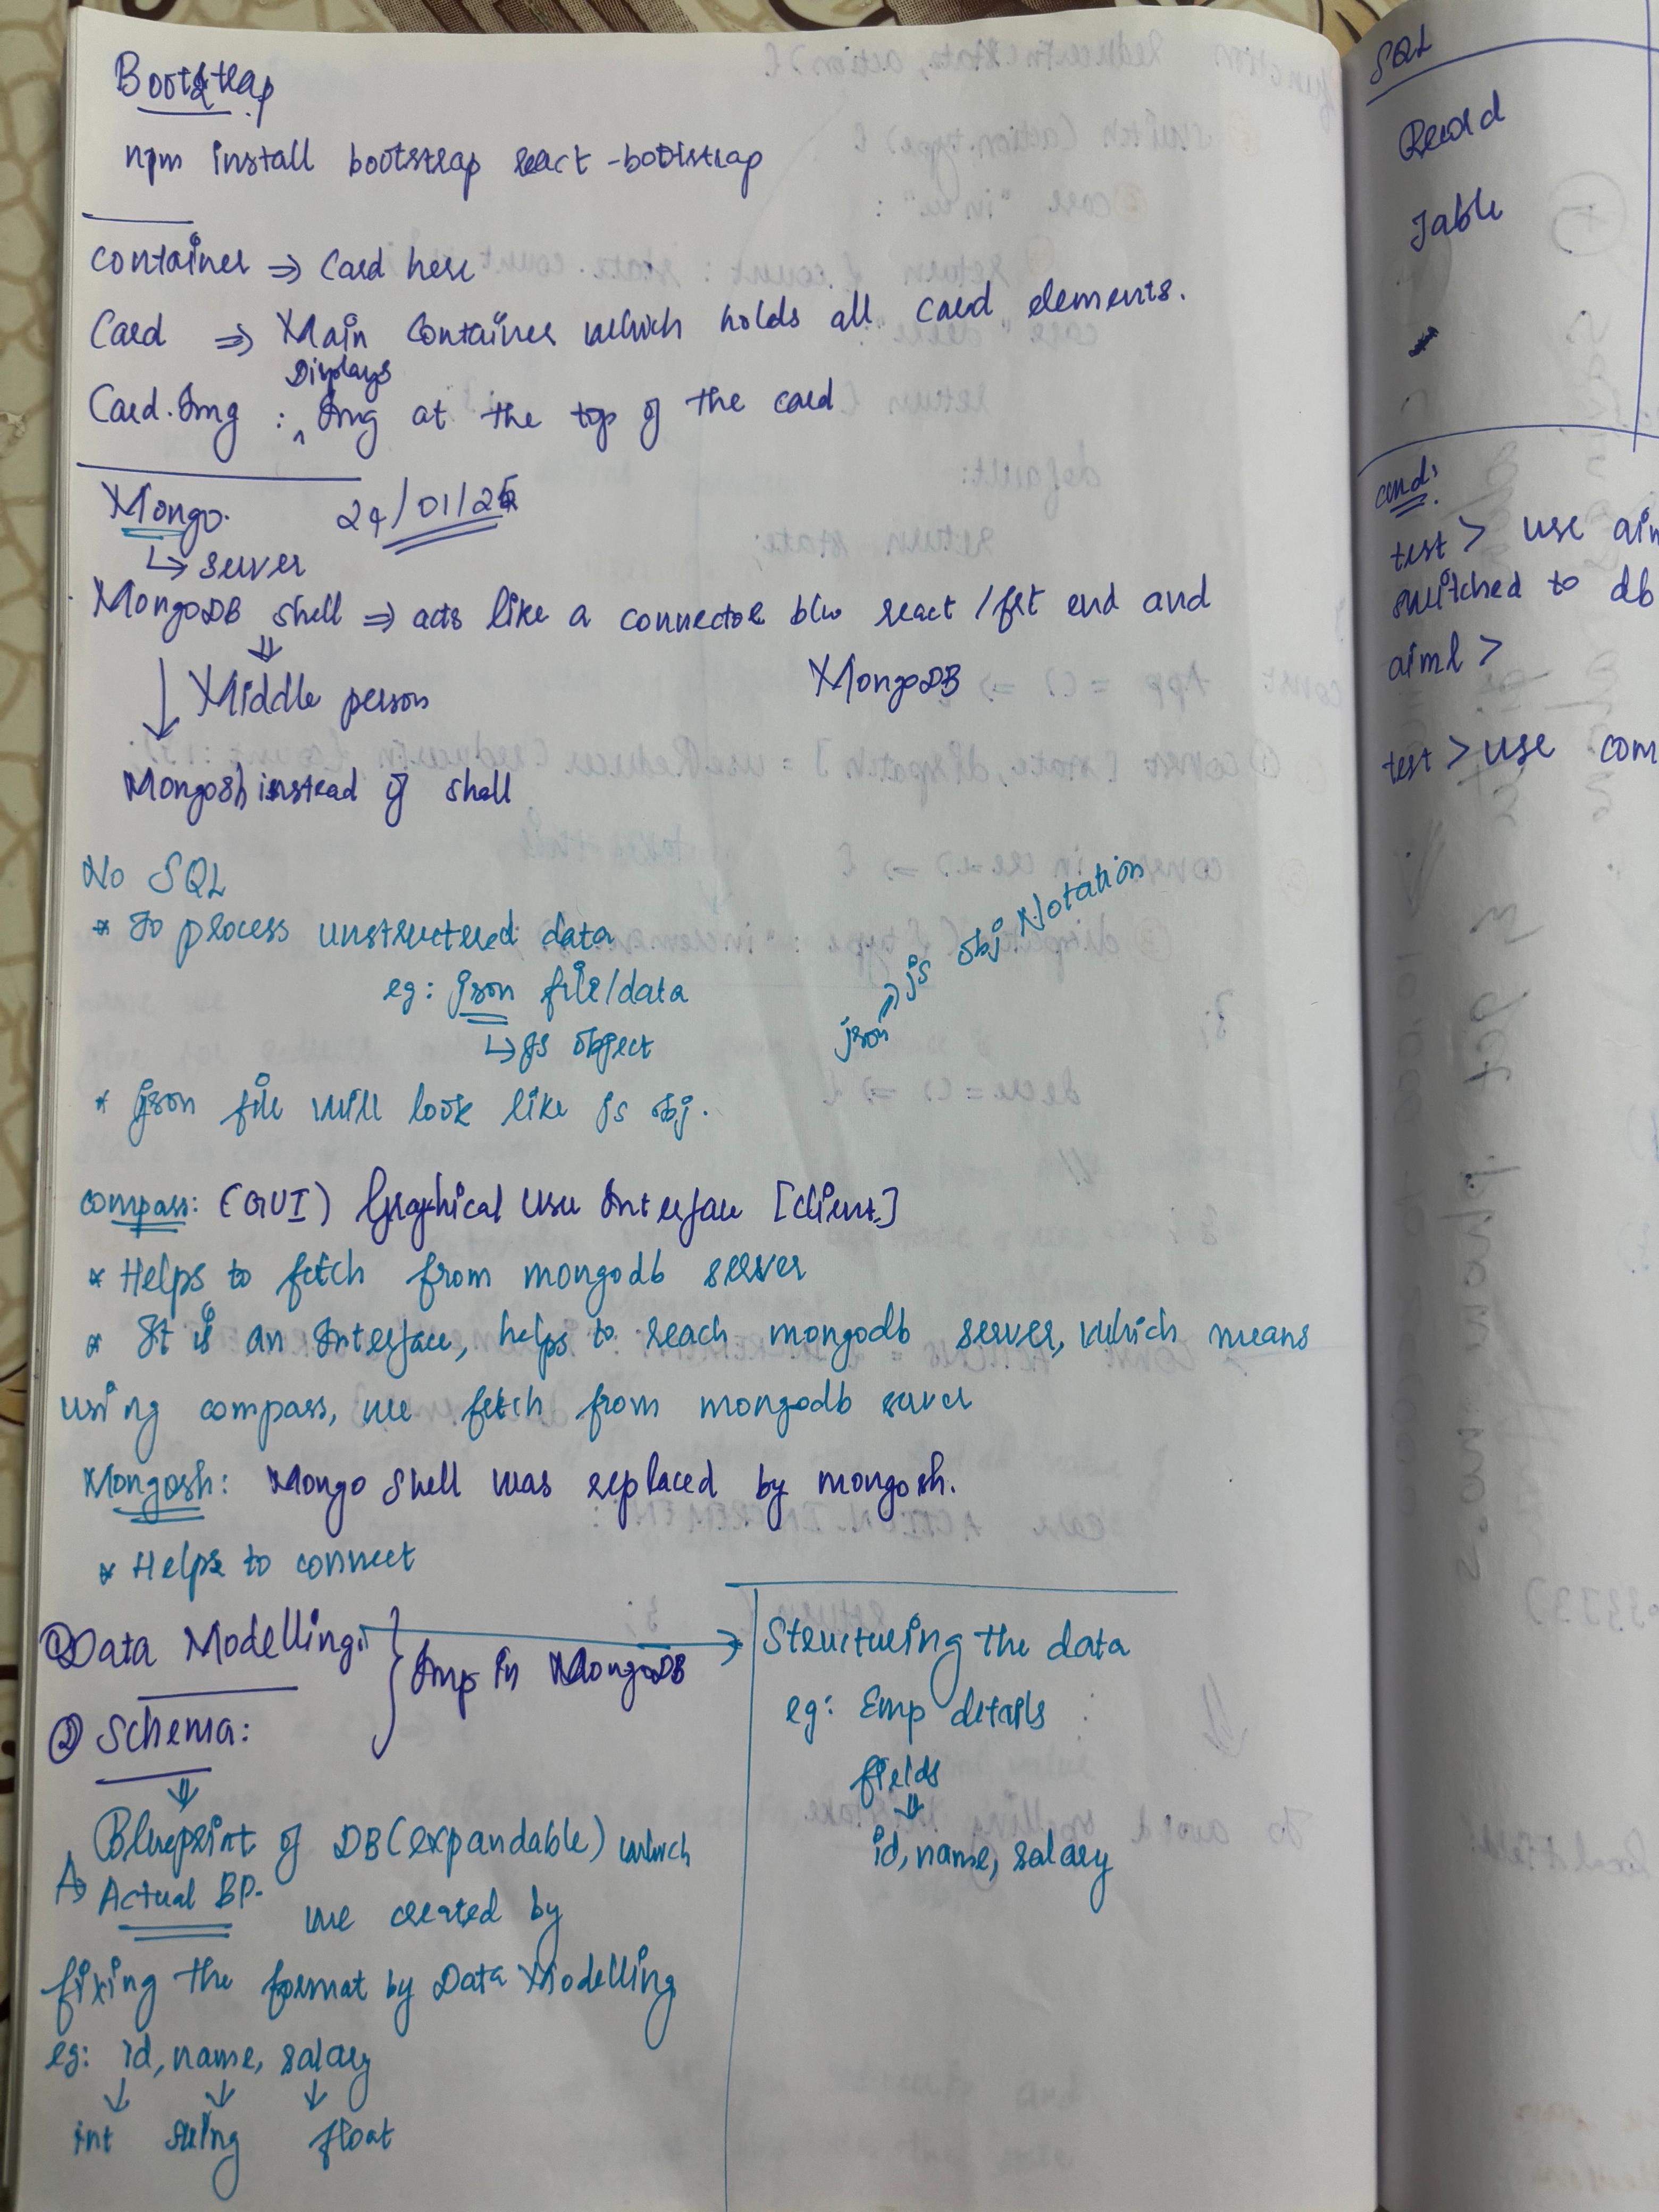 Bootstrap
npm install bootstrap react-bootstrap
container ⇒ Card here
Card ⇒ Main container which holds all card elements.
Displays
Card.Img : ^ Img at the top of the card
Mongo. 24/01/25
↳ server
MongoDB shell ⇒ acts like a connector b/w react /frt end and
MongoDB
⇓
↓ Middle person
Mongosh instead of shell
No SQL
* To process unstructured data
eg: json file/data
↳ js object
json ⇒ js obj Notation
* json file will look like js obj.
compass: (GUI) Graphical User Interface [client]
* Helps to fetch from mongodb server
* It is an Interface, helps to reach mongodb server, which means
using compass, we fetch from mongodb server
Mongosh: Mongo Shell was replaced by mongosh.
* Helps to connect
① Data Modelling: } Imp in MongoDB → Structuring the data
② Schema:
eg: Emp details
fields
↓
id, name, salary
⇓
Blueprint of DB (expandable) which
Actual BP. we created by
fixing the format by Data Modelling
eg: id, name, salary
↓ ↓ ↓
int string float
SQL
Record
Table
cmd:
test > use
switched to db
aiml >
test > use com